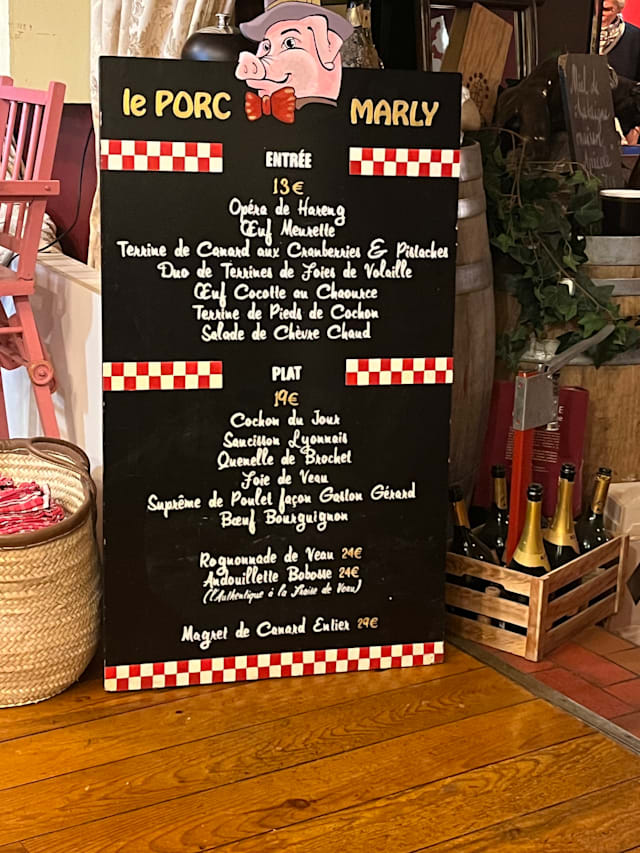 le PORC MARLY
ENTRÉE
13€
Opéra de Hareng
Œuf Meurette
Terrine de Canard aux Cranberries & Pistaches
Duo de Terrines de Foies de Volaille
Œuf Cocotte au Chaource
Terrine de Pieds de Cochon
Salade de Chèvre Chaud
PLAT
19€
Cochon du Jour
Saucisson Lyonnais
Quenelle de Brochet
Foie de Veau
Suprême de Poulet façon Gaston Gérard
Bœuf Bourguignon
Rognonnade de Veau 24€
Andouillette Bobosse 24€
(l'Authentique à la Fraise de Veau)
Magret de Canard Entier 29€